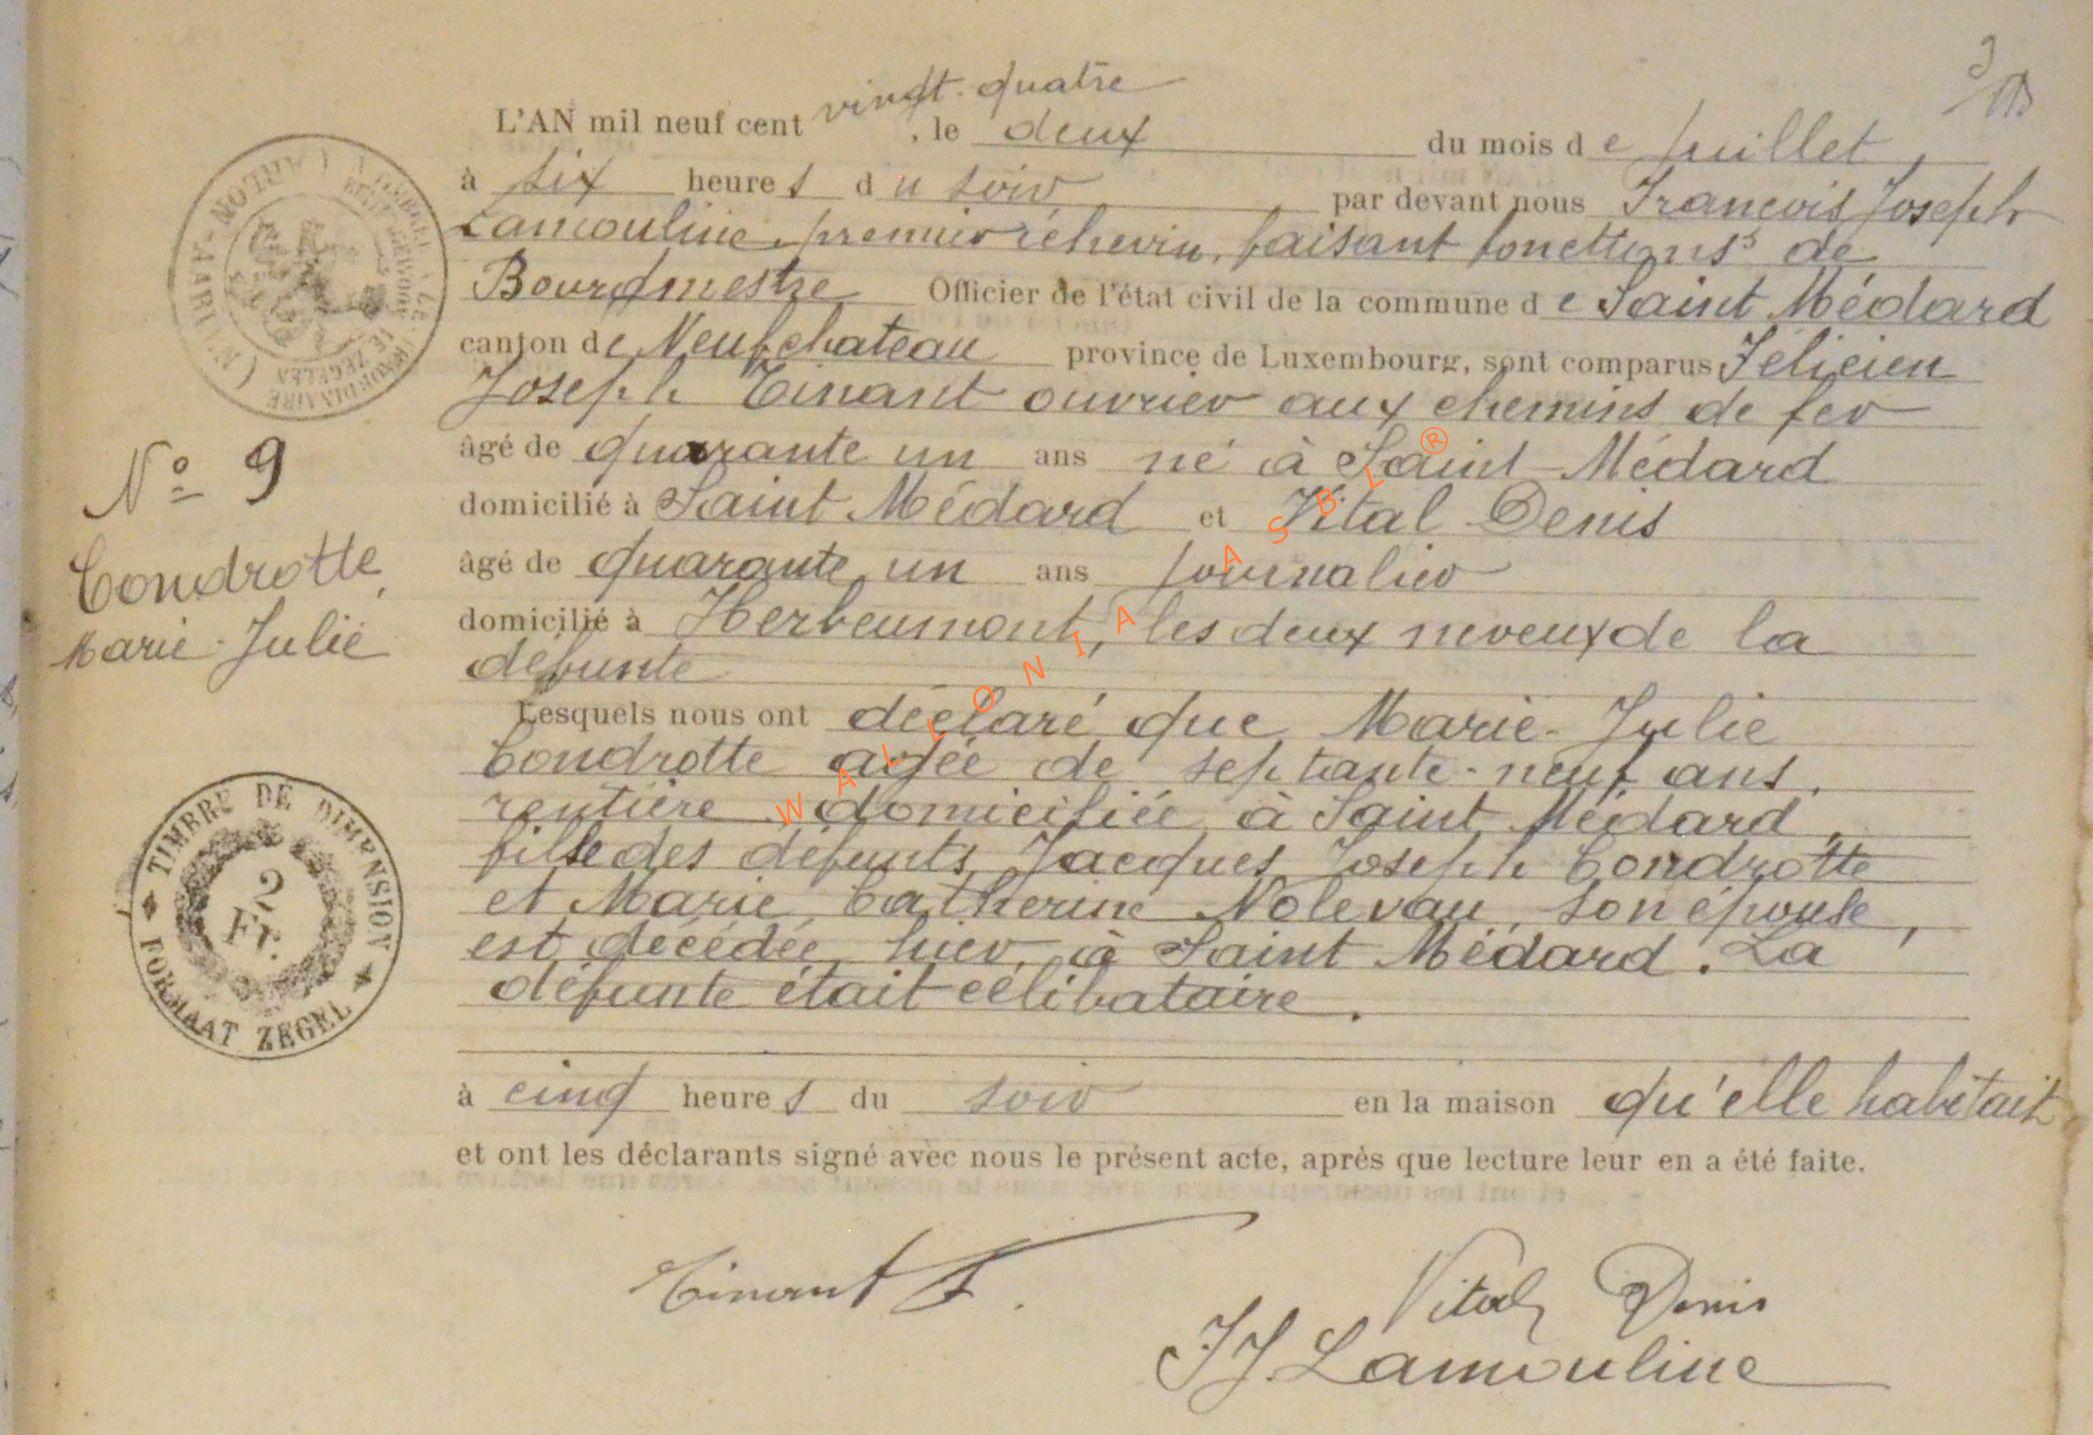 L'AN mil neuf cent vingt-quatre, le deux du mois de juillet,
à six heures du soir par devant nous François Joseph
Lamouline, premier échevin, faisant fonctions de
Bourgmestre Officier de l'état civil de la commune de Saint Médard
canton de Neufchateau province de Luxembourg, sont comparus Félicien
Joseph Tinant ouvrier aux chemins de fer
âgé de quarante un ans né à Saint-Médard
domicilié à Saint Médard et Vital Denis
âgé de quarante un ans journalier
domicilié à Herbeumont, les deux neveux de la
défunte
Lesquels nous ont déclaré que Marie-Julie
Condrotte agée de septante-neuf ans,
rentière domiciliée à Saint Médard,
fille des défunts Jacques Joseph Condrotte
et Marie Catherine Nolevau, son épouse,
est décédée hier à Saint Médard. La
défunte était célibataire.
à cinq heures du soir en la maison qu'elle habitait
et ont les déclarants signé avec nous le présent acte, après que lecture leur en a été faite.
Tinant F.
Vital Denis
JJ Lamouline
N° 9
Condrotte,
Marie-Julie
TIMBRE DE DIMENSION
2
Fr.
FORMAAT ZEGEL
WALLONIA ASBL®